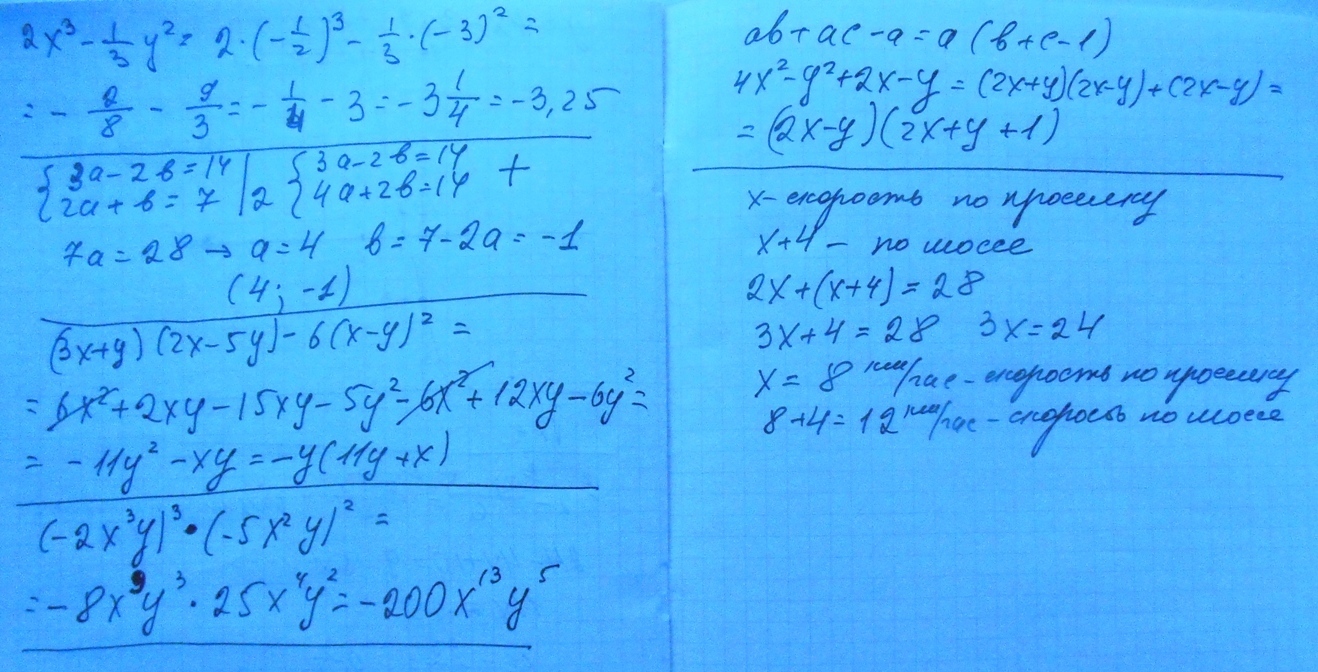 2x³ - 1/3 y² = 2·(-1/2)³ - 1/3·(-3)² =
= - 2/8 - 9/3 = - 1/4 - 3 = -3 1/4 = -3,25
{ 3a - 2b = 14 | { 3a - 2b = 14 +
{ 2a + b = 7 | 2 { 4a + 2b = 14
7a = 28 → a = 4 b = 7 - 2a = -1
(4; -1)
(3x+y)(2x-5y) - 6(x-y)² =
= 6x² + 2xy - 15xy - 5y² - 6x² + 12xy - 6y² =
= -11y² - xy = -y(11y+x)
(-2x³y)³ · (-5x²y)² =
= -8x⁹y³ · 25x⁴y² = -200x¹³y⁵
ab + ac - a = a(b+c-1)
4x² - y² + 2x - y = (2x+y)(2x-y) + (2x-y) =
= (2x-y)(2x+y+1)
x - скорость по просёлку
x+4 - по шоссе
2x + (x+4) = 28
3x+4 = 28 3x = 24
x = 8 км/час - скорость по просёлку
8+4 = 12 км/час - скорость по шоссе